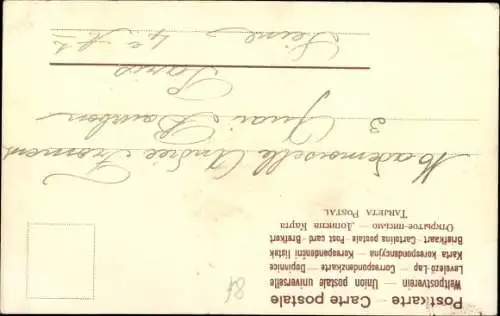 Postkarte — Carte postale
Weltpostverein — Union postale universelle
Levelező-Lap — Correspondenzkarte — Dopisnice
Karta korespondencyjna — Korespondenční lístek
Briefkaart — Cartolina postale — Post card — Brefkort
Открытое письмо — Дописна Карта
TARJETA POSTAL
Mademoiselle Andrée Froment
3 Quai Bourbon
Paris
4e Art
Seine